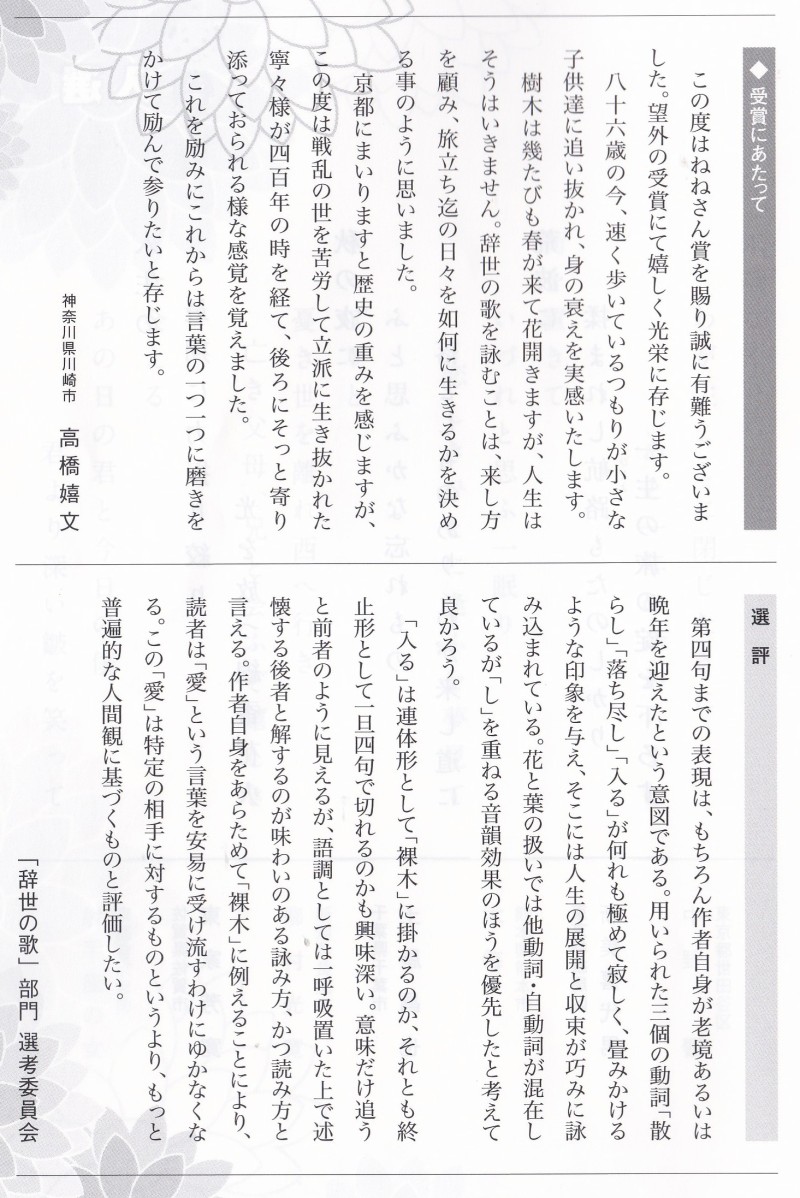 ◆ 受賞にあたって
この度はねねさん賞を賜り誠に有難うございま
した。望外の受賞にて嬉しく光栄に存じます。
八十六歳の今、速く歩いているつもりが小さな
子供達に追い抜かれ、身の衰えを実感いたします。
樹木は幾たびも春が来て花開きますが、人生は
そうはいきません。辞世の歌を詠むことは、来し方
を顧み、旅立ち迄の日々を如何に生きるかを決め
る事のように思いました。
京都にまいりますと歴史の重みを感じますが、
この度は戦乱の世を苦労して立派に生き抜かれた
寧々様が四百年の時を経て、後ろにそっと寄り
添っておられる様な感覚を覚えました。
これを励みにこれからは言葉の一つ一つに磨きを
かけて励んで参りたいと存じます。
神奈川県川崎市 高橋嬉文
選評
第四句までの表現は、もちろん作者自身が老境あるいは
晩年を迎えたという意図である。用いられた三個の動詞「散
らし」「落ち尽し」「入る」が何れも極めて寂しく、畳みかける
ような印象を与え、そこには人生の展開と収束が巧みに詠
み込まれている。花と葉の扱いでは他動詞・自動詞が混在し
ているが「し」を重ねる音韻効果のほうを優先したと考えて
良かろう。
「入る」は連体形として「裸木」に掛かるのか、それとも終
止形として一旦四句で切れるのかも興味深い。意味だけ追う
と前者のように見えるが、語調としては一呼吸置いた上で述
懐する後者と解するのが味わいのある詠み方、かつ読み方と
言える。作者自身をあらためて「裸木」に例えることにより、
読者は「愛」という言葉を安易に受け流すわけにゆかなくな
る。この「愛」は特定の相手に対するものというより、もっと
普遍的な人間観に基づくものと評価したい。
「辞世の歌」部門 選考委員会